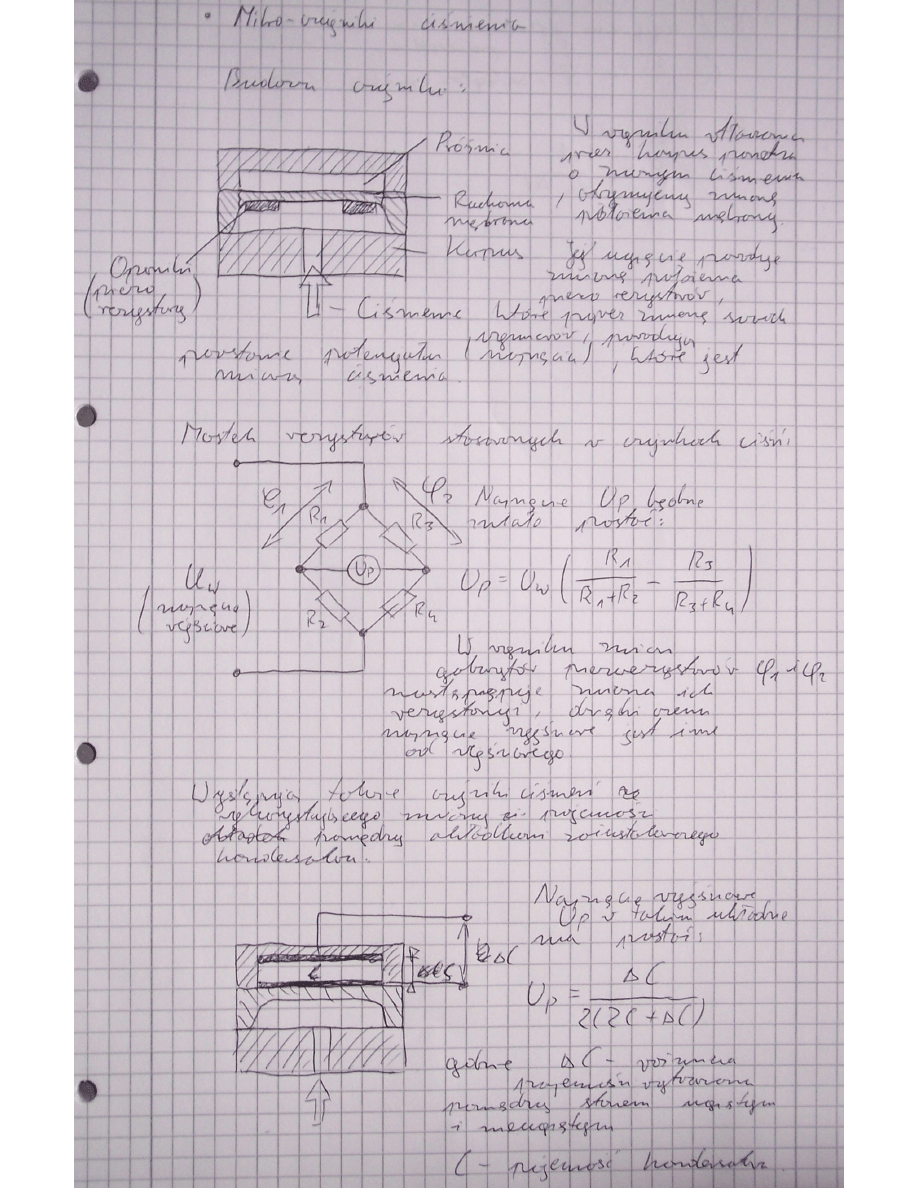 • Mikro-czujniki ciśnienia
Budowa czujnika:
Próżnia
Ruchoma
membrana
Korpus
Oporniki
(piezo
rezystory)
Ciśnienie
W wyniku wtłaczania
przez korpus powietrza
o zmiennym ciśnieniu
, otrzymujemy zmianę
położenia membrany.
Jej ugięcie powoduje
zmianę położenia
piezo rezystorów,
które przez zmianę swoich
wymiarów, powodują
powstanie potencjału (napięcia), które jest
miarą ciśnienia.
Mostek rezystorów stosowanych w czujnikach ciśń.
φ1
φ2
R1
R3
Up
R2
R4
Uw
(napięcie
wejściowe)
Napięcie Up będzie
miało postać:
Up = Uw (R1/(R1+R2) - R3/(R3+R4))
W wyniku zmian
gabarytów piezorezystorów φ1 i φ2
następuje zmiana ich
rezystancji, dzięki czemu
napięcie wyjściowe jest inne
od wejściowego.
Występują także czujniki ciśnień
wykorzystującego zmiany pojemności
pomiędzy okładkami zainstalowanego
kondensatora.
C
ΔC
Napięcie wyjściowe
Up w takim układzie
ma postać:
Up = ΔC/(2(2C+ΔC))
gdzie ΔC - różnica
pojemności wytworzona
pomiędzy stanem ugiętym
i nieugiętym
C - pojemność kondensatora